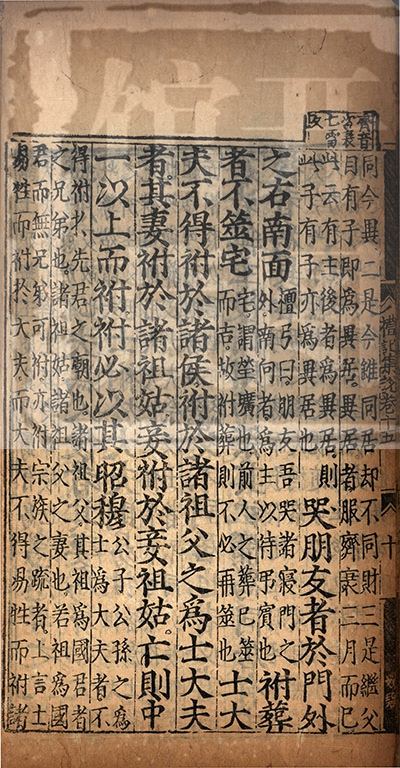 齊音
咨衰
七雷
反
禮記集說卷十五 十
同今異二是今雖同居却不同財三是繼父
自有子即為異居異居者服齊衰三月而已
此云有主後者為異居則
此子有子亦為異居也
哭朋友者於門外
之右南面
檀弓曰朋友吾哭諸寢門之
外南向者為主以待弔賓也
祔葬
者不筮宅
宅謂塋壙也前人之葬已筮
而吉故祔葬則不必再筮也
士大
夫不得祔於諸侯祔於諸祖父之為士大夫
者其妻祔於諸祖姑妾祔於妾祖姑亡則中
一以上而祔祔必以其昭穆
公子公孫之為
士為大夫者不
得祔於先君之廟也諸祖父其祖為國君者
之兄弟也諸祖姑諸祖父之妻也若祖為國
君而無兄弟可祔亦祔宗族之疏者上言士
易牲而祔於大夫而大夫不得易牲而祔諸